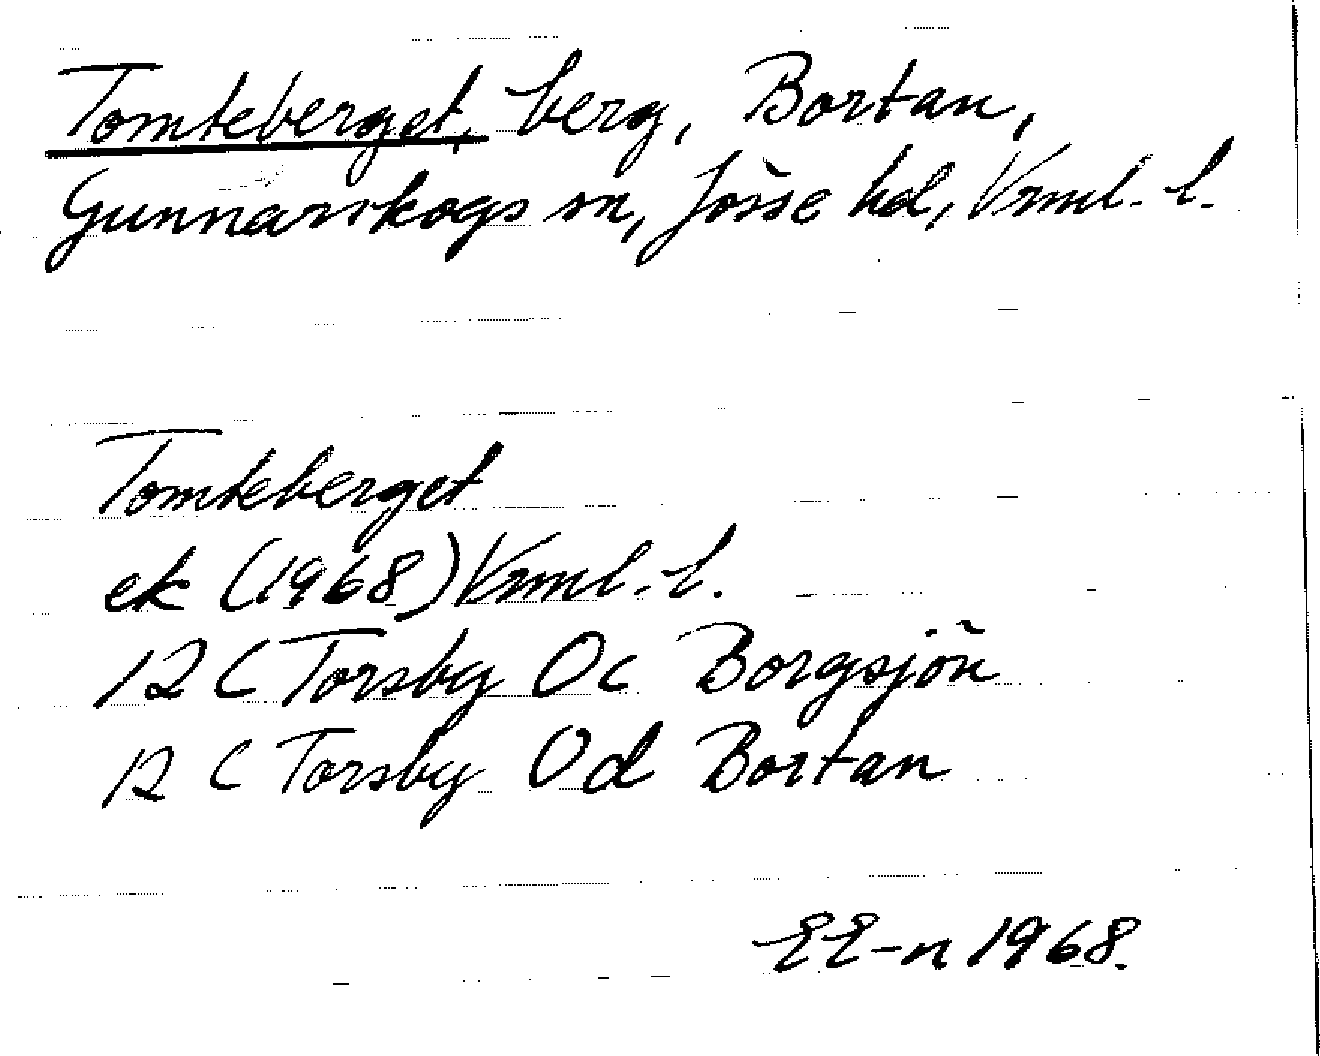 Tomteberget, berg, Bortan,
Gunnarskogs sn, Jösse hd, Vrml. l.
Tomteberget
ek (1968) Vrml. l.
12 C Torsby Oc Borgsjön
12 C Torsby Od Bortan
EE-n 1968.